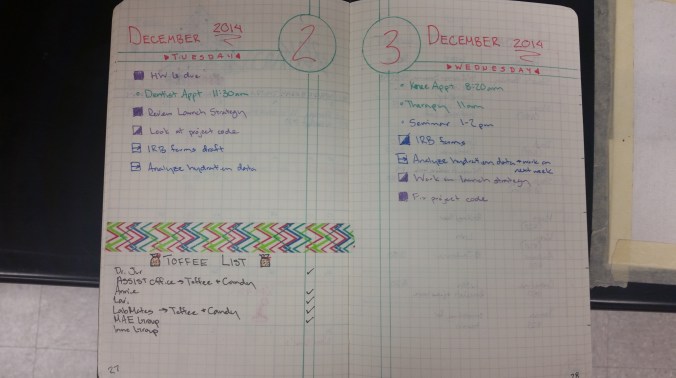 DECEMBER 2014
2
TUESDAY
HW 6 due
Dentist Appt 11:30am
Review Launch Strategy
Look at project code
IRB forms draft
Analyze hydration data
TOFFEE LIST
Dr. Jur
ASSIST Office → Toffee + Candy
Annie
Lev.
LabMates → Toffee + Candy
MAE Group
Group
27
3
DECEMBER 2014
WEDNESDAY
Knee Appt 8:20am
Therapy 11am
Seminar 1-2pm
IRB forms
Analyze hydration data → work on next week
Work on launch strategy
Fix project code
28